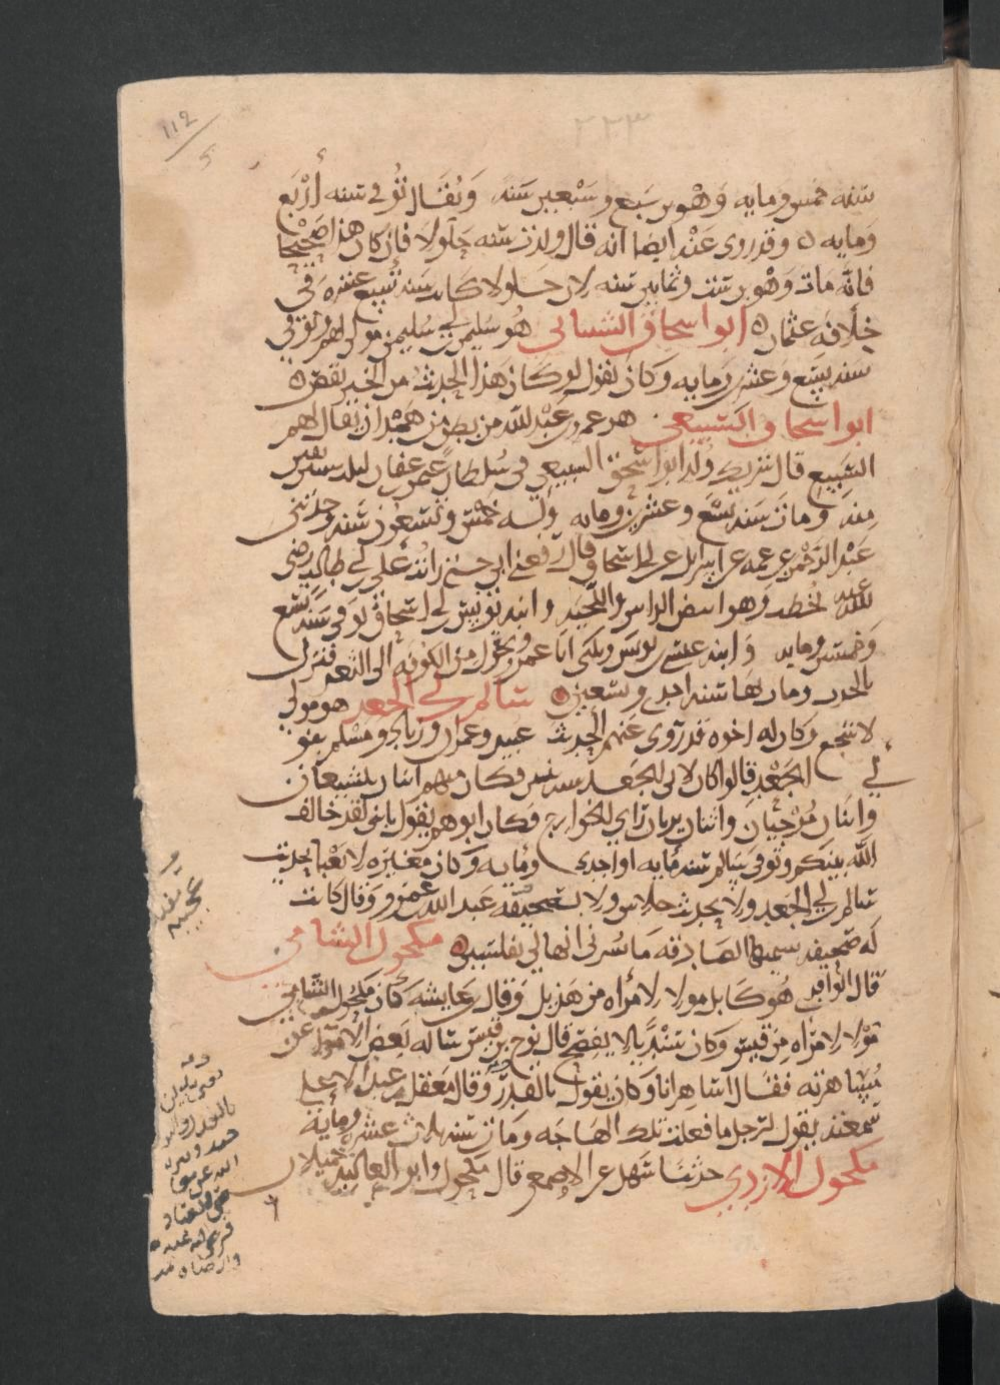 112
5
٢٢٣
سنه خمس ومايه وهو بن سبع وسبعين سنه ويقال توفى سنه أربع
ومايه ٥ وقد روى عنه ايضا انه قال ولدت سنه جلولا فإن كان هذا صحيحا
فانه مات وهو بن ست وثمانين سنه لان جلولا كانت سنه تسع عشره فى
خلافه عثمان ٥ ابو اسحاق الشيبانى هو سليمن بن ابى سليمن مولى لهم وتوفى
سنه تسع وعشرين ومايه وكان يقول لو كان هذا الحديث من الخبز نقص ٥
ابو اسحاق السبيعى هو عمرو بن عبد الله من بطن من همدان يقال لهم
السبيع قال شريك ولد ابو اسحق السبيعى فى سلطان عثمن بن عفان لثلث سنين
منه ومات سنه تسع وعشرين ومايه وله خمس وتسعون سنه وحدثنى
عبد الرحمن عن عمه عن اسرايل عن ابى اسحاق قال رفعنى ابى حتى رايت على بن ابى طالب رضى
الله عنه يخطب وهو ابيض الراس واللحيه وابنه يونس بن ابى اسحاق توفى سنه تسع
وخمسين ومايه وابنه عيسى بن يونس ويكنى ابا عمرو وتحول من الكوفه الى الثغر فنزل
بالحدث ومات بها سنه احدى وتسعين ٥ سالم بن ابى الجعد هو مولى
لاشجع وكان له اخوه قد روى عنهم الحديث عبيد وعمران وزياد ومسلم بنو
ابى الجعد قالوا كان لابى الجعد سته بنين فكان منهم اثنان يتشيعان
واثنان مرجيان واثنان يريان راى الخوارج فكان ابوهم يقول يا بنى لقد خالف
الله بينكم وتوفى سالم سنه مايه او احدى ومايه وكان مغيره لا يعبا بحديث
سالم بن ابى الجعد ولا بحديث خلاس ولا بصحيفه عبد الله بن عمرو وقال كانت
له صحيفه يسميها الصادقه ما سرنى انها لى بفلسين ٥ مكحول الشامى
قال الواقدى هو كابل مولا لامراه من هذيل وقال بن عايشه كان مكحول الشامى
مولا لامراه من قيس وكان سنديا لا يفصح قال نوح بن قيس ساله بعض الامرا عن
القدر فقال اساهر انا وكان يقول بالقدر وقال معقل بن عبد الاعلى
سمعته يقول لرجل ما فعلت تلك الهاجه ومات سنه ثلاث عشره ومايه
مكحول الازدى حدثنا سهل عن الاصمعى قال مكحول وابو العاليه جميلان